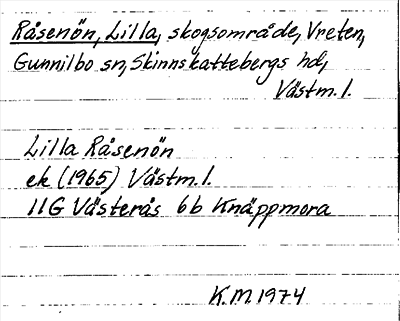 Råsenön, Lilla, skogsområde, Vreten,
Gunnilbo sn, Skinnskattebergs hd,
Västm. l.
Lilla Råsenön
ek (1965) Västm. l.
11G Västerås 6b Knäppmora
K.M. 1974